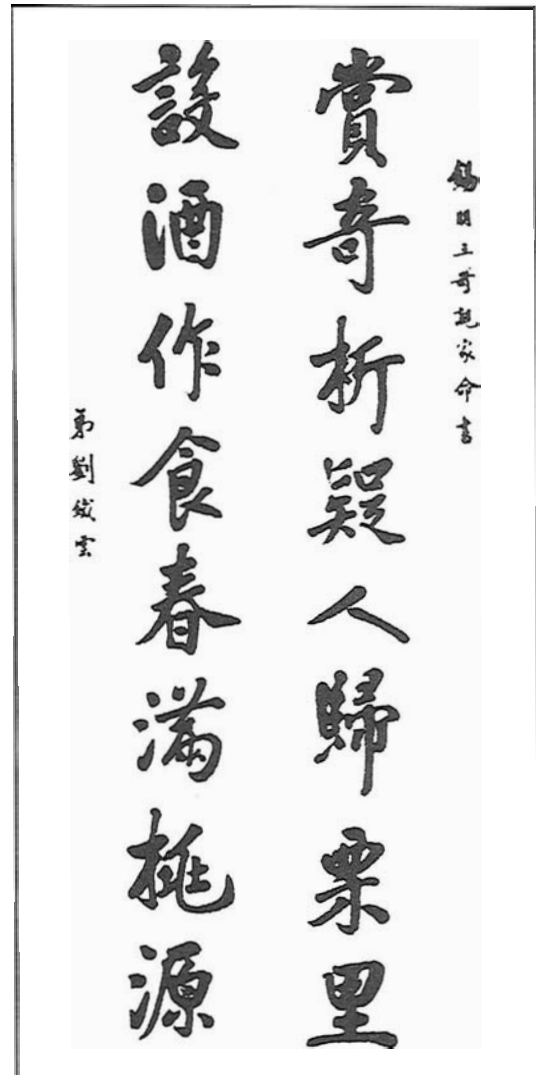 錫朋三哥親家命書
賞奇析疑人歸栗里
設酒作食春滿桃源
弟劉鐵雲